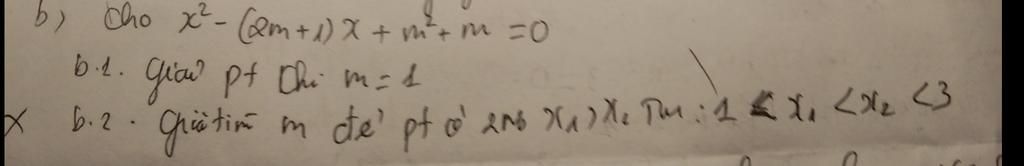 b) Cho x² - (2m+1)x + m² + m = 0
b.1. Giải pt khi m = 1
x b.2. tìm m để pt có 2 n₀ x₁, x₂ Tm : 1 < x₁ < x₂ < 3